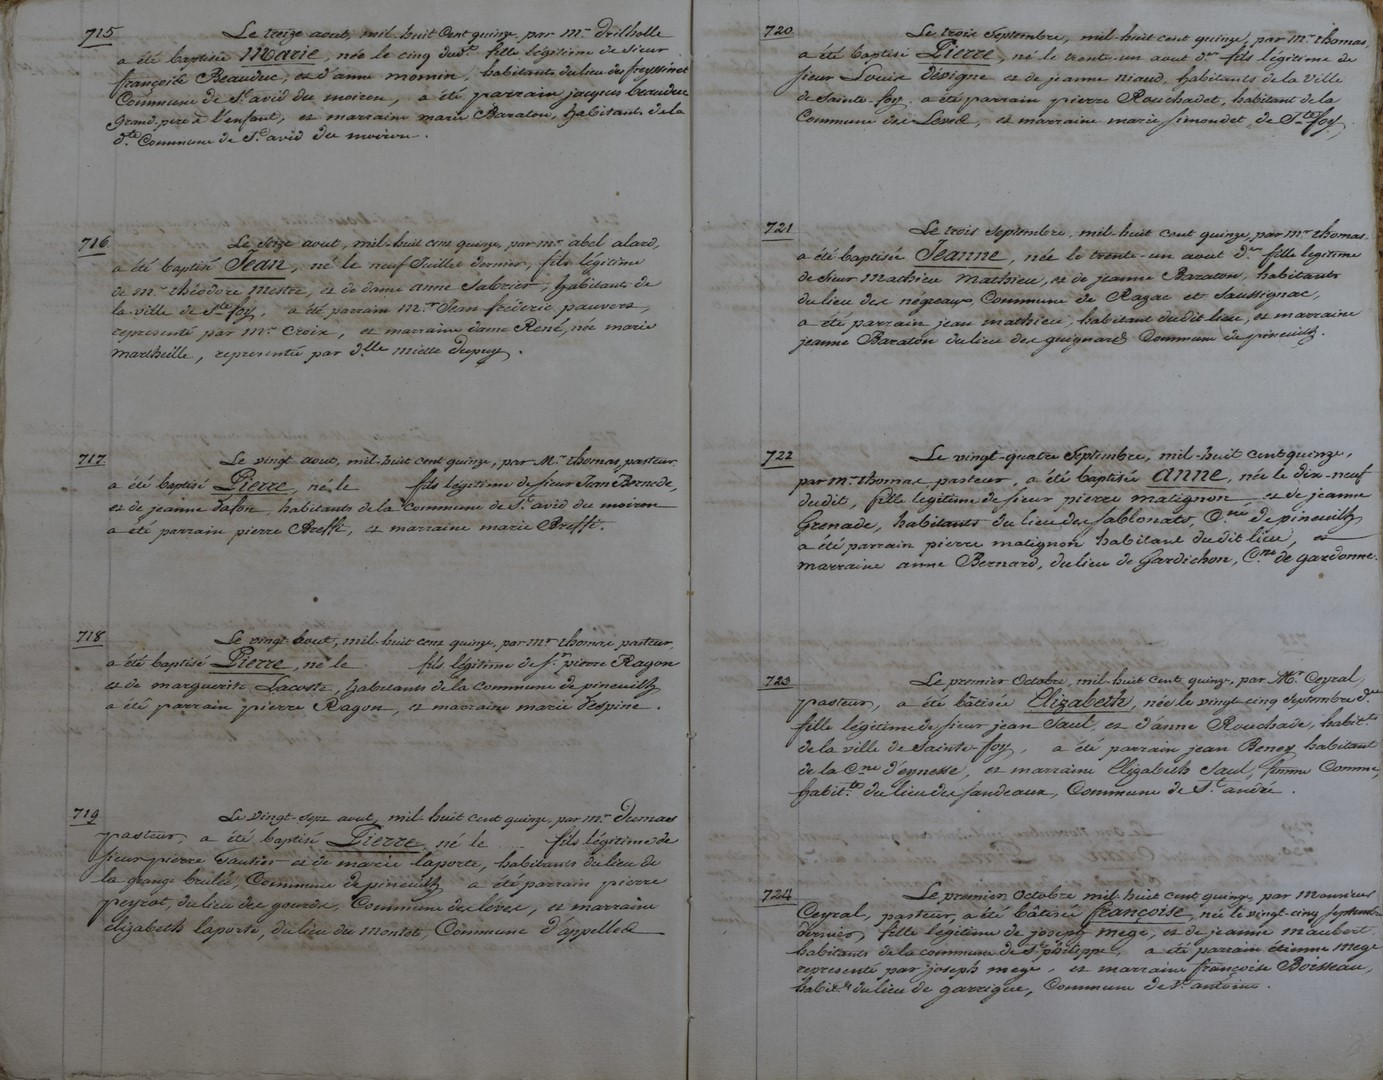 715
Le treize aout, mil-huit cent quinze, par Mr. Drilholle
a été baptisée Marie, née le cinq dudt. fille légitime de sieur
françois Beauduc, et d'anne momin, habitants du lieu des freyssinet
Commune de St. avid du moiron, a été parrain jacques beauduc
Grand pere à l'enfant, et marraine marie Baraton, habitants de la
dte. Commune de St. avid du moiron.
716
Le seize aout, mil-huit cent quinze, par mr. abel alard,
a été baptisé Jean, né le neuf Juillet dernier, fils légitime
de mr. théodore mestre, et de dame anne Sabrier, habitants de
la ville de Ste. foy, a été parrain mr. Jean frédéric pauvert,
representé par mr. Croix, et marraine dame René, née marie
martheille, representée par dlle miette dupuy.
717
Le vingt aout, mil-huit cent quinze, par Mr. thomas, pasteur,
a été baptisé Pierre, né le fils légitime de sieur Jean Bernede,
et de jeanne Lafon, habitants de la Commune de St. avid du moiron
a été parrain pierre Breffi, et marraine marie Breffi.
718
Le vingt aout, mil-huit cent quinze, par mr. thomas pasteur,
a été baptisé Pierre, né le fils légitime de sr. pierre Ragon
et de marguerite Lacoste, habitants de la commune de pineuilh
a été parrain pierre Ragon, et marraine marie Despine.
719
Le vingt-sept aout, mil-huit cent quinze, par mr. Dumas
pasteur, a été baptisé Pierre né le fils légitime de
sieur pierre Gautier et de marie laporte, habitants du lieu de
la grange brulée, Commune de pineuilh a été parrain pierre
peyrot, du lieu des gourds, Commune des léves, et marraine
élizabeth laporte, du lieu du montet, Commune d'appelles
720
Le trois Septembre, mil-huit cent quinze, par mr. thomas,
a été baptisé Pierre, né le trente-un aout der. fils légitime de
sieur Louis désigne et de jeanne niaud, habitants de la ville
de Sainte-foy. a été parrain pierre Rouchadet, habitant de la
Commune des Leves, et marraine marie simondet, de Ste. foy,
721
Le trois Septembre, mil-huit cent quinze, par mr. thomas.
a été baptisée Jeanne, née le trente-un aout der. fille légitime
de Sieur Mathieu Mathieu, et de jeanne Baraton, habitants
du lieu des negreaux, Commune de Razac et Saussignac,
a été parrain jean mathieu, habitant dudit lieu, et marraine
jeanne Baraton du lieu des guignards Commune de pineuilh.
722
Le vingt-quatre Septembre, mil-huit cent quinze,
par mr. thomas pasteur, a été baptisée anne, née le dix-neuf
dudit, fille légitime de sieur pierre matignon et de jeanne
Grenade, habitants du lieu des sablonats, Cne. de pineuilh
a été parrain pierre matignon habitant dudit lieu, et
marraine anne Bernard, du lieu de Gardichon, Cne. de gardonne.
723
Le premier Octobre, mil-huit cent quinze, par Mr. Ceyral,
pasteur, a été bâtisée Elizabeth, née le vingt-cinq septembre der.
fille légitime de sieur jean Saul, et d'anne Rouchade, habitts.
de la ville de Sainte-foy, a été parrain jean Beney habitant
de la Cne d'eynesse, et marraine Elizabeth Saul, femme Comme,
habitte. du lieu des fandeaux, Commune de St. andré.
724
Le premier Octobre mil huit cent quinze, par monsieur
Ceyral, pasteur, a été bâtisée françoise, née le vingt-cinq septembre
dernier, fille légitime de joseph mege, et de jeanne maubert
habitants de la commune de St. philippe, a été parrain étienne mege
representé par joseph mege, et marraine françoise Boisseau,
habite. du lieu de garrigue, Commune de St. antoine.